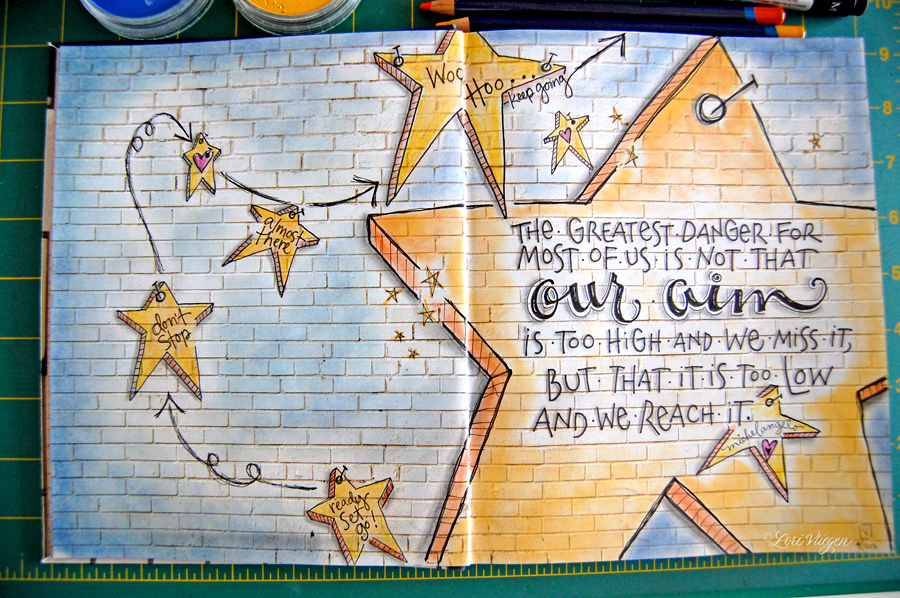 Woo Hoo...
keep going
almost
there
don't
stop
ready
Set
go!
THE·GREATEST·DANGER·FOR
MOST·OF·US·IS·NOT·THAT
our·aim
iS·TOO·HiGH·AND·WE·MISS·IT,
BUT·THAT·IT·IS·TOO·LOW
AND·WE·REACH·IT.
michelangelo
©Lori Vliegen
10
9
8
7
6
5
4
3
2
M